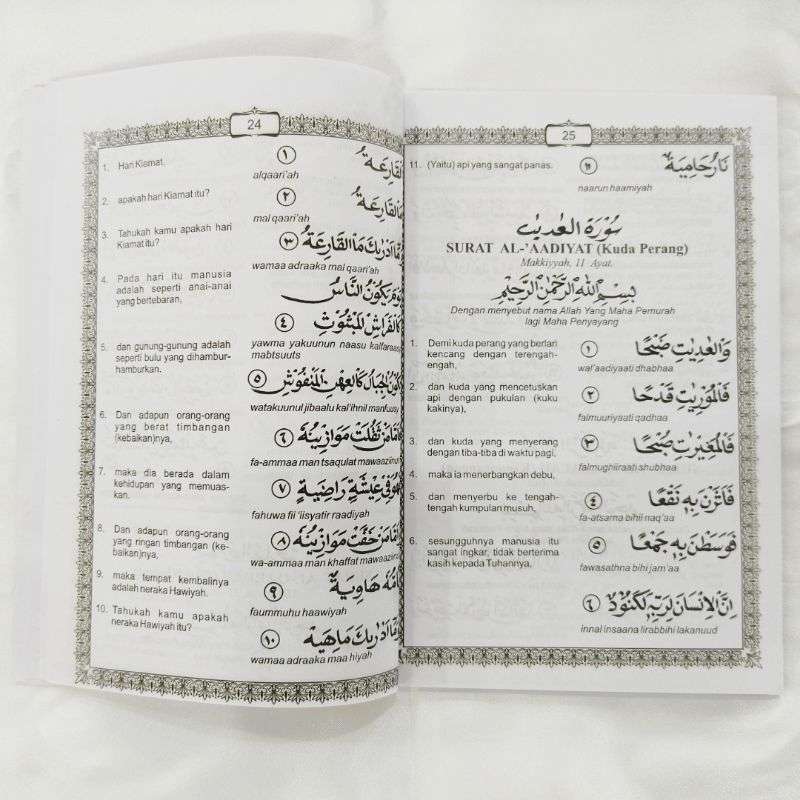 24
1. Hari Kiamat,
١
alqaari'ah
2. apakah hari Kiamat itu?
٢
mal qaari'ah
3. Tahukah kamu apakah hari
Kiamat itu?
٣
wamaa adraaka mal qaari'ah
4. Pada hari itu manusia
adalah seperti anai-anai
yang bertebaran,
يَكُوْنُ النَّاسُ
كَالْفَرَاشِ الْمَبْثُوْثِ ٤
yawma yakuunun naasu kalfaraas
mabtsuuts
5. dan gunung-gunung adalah
seperti bulu yang dihambur-
hamburkan.
الْجِبَالُ كَالْعِهْنِ الْمَنْفُوْشِ ٥
watakuunul jibaalu kal'ihnil manfuusy
6. Dan adapun orang-orang
yang berat timbangan
(kebaikan)nya,
مَنْ ثَقُلَتْ مَوَازِيْنُهُ ٦
fa-ammaa man tsaqulat mawaaziinu
7. maka dia berada dalam
kehidupan yang memuas-
kan.
فِيْ عِيْشَةٍ رَاضِيَةٍ ٧
fahuwa fii 'iisyatir raadiyah
8. Dan adapun orang-orang
yang ringan timbangan (ke-
baikan)nya,
مَنْ خَفَّتْ مَوَازِيْنُهُ ٨
wa-ammaa man khaffat mawaaziinu
9. maka tempat kembalinya
adalah neraka Hawiyah.
هَاوِيَةٌ ٩
faummuhu haawiyah
10. Tahukah kamu apakah
neraka Hawiyah itu?
أَدْرٰىكَ مَاهِيَهْ ١٠
wamaa adraaka maa hiyah
25
11. (Yaitu) api yang sangat panas.
نَارٌ حَامِيَةٌ ١١
naarun haamiyah
سُوْرَةُ الْعٰدِيٰتِ
SURAT AL-'AADIYAT (Kuda Perang)
Makkiyyah, 11 Ayat.
بِسْمِ اللهِ الرَّحْمٰنِ الرَّحِيْمِ
Dengan menyebut nama Allah Yang Maha Pemurah
lagi Maha Penyayang
1. Demi kuda perang yang berlari
kencang dengan terengah-
engah,
وَالْعٰدِيٰتِ ضَبْحًا ١
wal'aadiyaati dhabhaa
2. dan kuda yang mencetuskan
api dengan pukulan (kuku
kakinya),
فَالْمُوْرِيٰتِ قَدْحًا ٢
falmuuriyaati qadhaa
3. dan kuda yang menyerang
dengan tiba-tiba di waktu pagi,
فَالْمُغِيْرٰتِ صُبْحًا ٣
falmughiiraati shubhaa
4. maka ia menerbangkan debu,
فَأَثَرْنَ بِهٖ نَقْعًا ٤
fa-atsarna bihii naq'aa
5. dan menyerbu ke tengah-
tengah kumpulan musuh,
فَوَسَطْنَ بِهٖ جَمْعًا ٥
fawasathna bihi jam'aa
6. sesungguhnya manusia itu
sangat ingkar, tidak berterima
kasih kepada Tuhannya,
اِنَّ الْاِنْسَانَ لِرَبِّهٖ لَكَنُوْدٌ ٦
innal insaana lirabbihi lakanuud